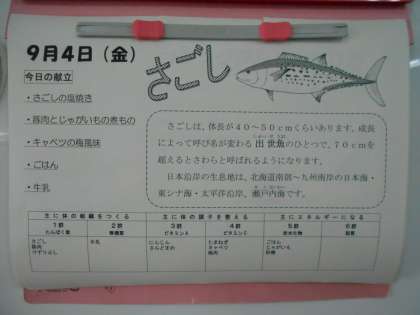 9月4日(金)
さごし
今日の献立
・さごしの塩焼き
・豚肉とじゃがいもの煮もの
・キャベツの梅風味
・ごはん
・牛乳
さごしは、体長が40~50cmくらいあります。成長
によって呼び名が変わる出世魚のひとつで、70cmを
超えるとさわらと呼ばれるようになります。
日本沿岸の生息地は、北海道南部~九州南岸の日本海・
東シナ海・太平洋沿岸、瀬戸内海です。
主に体の組織をつくる 主に体の調子を整える 主にエネルギーになる
1群 2群 3群 4群 5群 6群
たんぱく質 無機質 ビタミンA ビタミンC 炭水化物 脂質
さごし 牛乳 にんじん たまねぎ ごはん
豚肉 さんどまめ キャベツ じゃがいも
けずりぶし 梅肉 砂糖